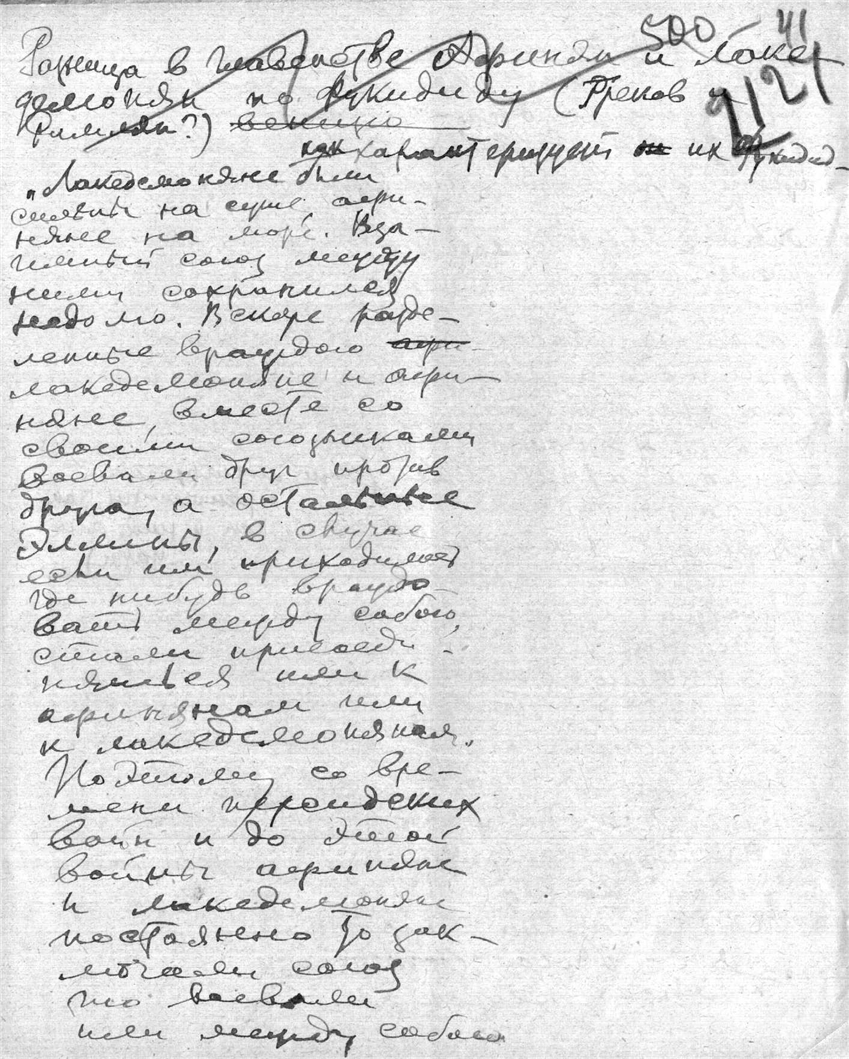 500 41
Разница в главенстве Афинян и Лаке-
демонян по Фукидиду (Греков и
Римлян?)
2121
как характеризует их Фукидид
„Лакедемоняне были
сильны на суше, афи-
няне на море. Вза-
имный союз между
ними сохранился
недолго. Вскоре разде-
ленные враждою
лакедемоняне и афи-
няне, вместе со
своими союзниками
воевали друг против
друга, а остальные
Эллины, в случае
если им приходилось
где нибудь враждо-
вать между собою,
стали присоеди-
няться или к
афинянам или
к лакедемонянам.
Поэтому со вре-
мени персидских
войн и до этой
войны афиняне
и лакедемоняне
постоянно то зак-
лючали союз
то воевали
или между собою